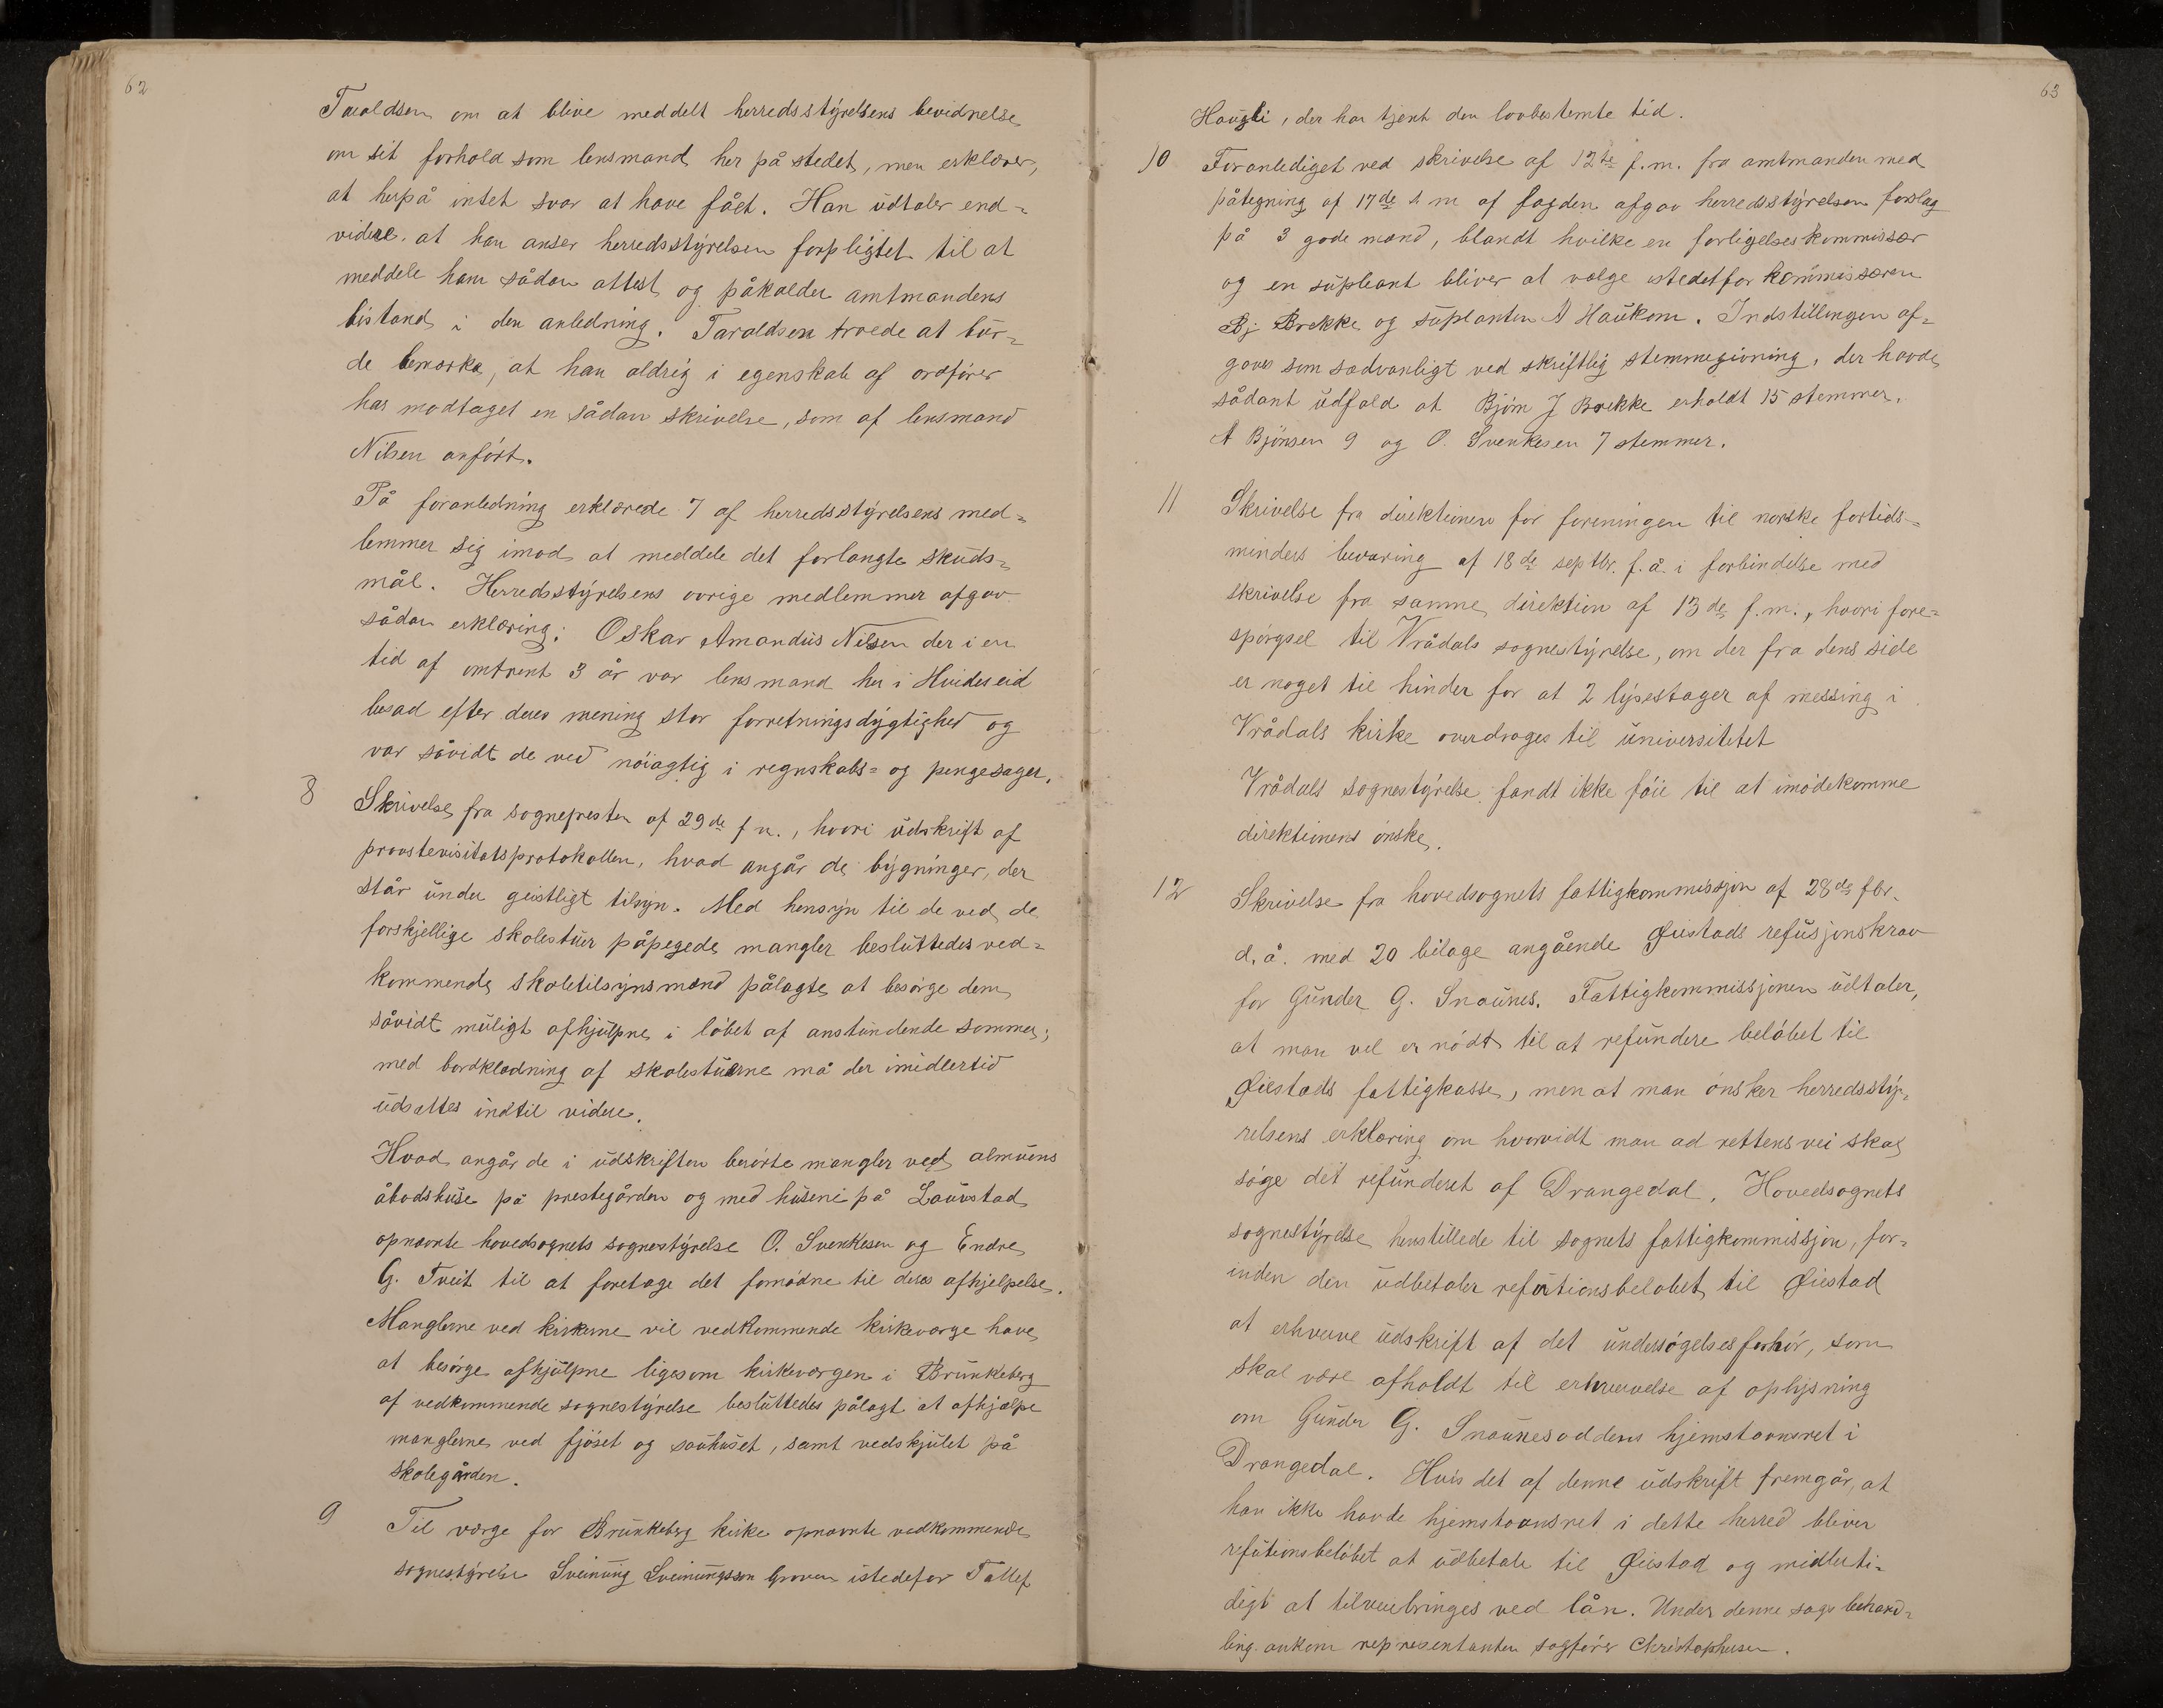 62
Taraldsen om at blive meddelt herredsstýrelsens bevidnelse
om sit forhold som lensmand her på stedet, men erklærer,
at herpå intet svar at have fået. Han udtaler end-
videre at han anser herredsstýrelsen forpligtet til at
meddele ham sådan attest og påkalder amtmandens
bistand i den anledning. Taraldsen troede at bur-
de bemærke, at han aldrig i egenskab af ordfører
har modtaget en sådan skrivelse, som af lensmand
Nilsen anført.
På foranledning erklærede 7 af herredsstýrelsens med-
lemmer sig imod at meddele det forlangte skuds-
mål. Herredsstýrelsens øvrige medlemmer afgav
sådan erklæring: Oskar Amandus Nilsen der i en
tid af omtrent 3 år var lensmand her i Hvideseid
besad efter deres mening stor forretningsdýgtighed og
var såvidt de ved nøiagtig i regnskabs- og pengesager.
8 Skrivelse fra sognepresten af 29de f m., hvori udskrift af
provstevisitatsprotokollen, hvad angår de býgninger, der
står under geistligt tilsýn. Med hensýn til de ved de
forskjellige skolestuer påpegede mangler besluttedes ved-
kommende skoletilsýnsmænd pålagte at besørge dem
såvidt muligt afhjulpne i løbet af anstundende sommer;
med bordklædning af skolestuerne må der imidlertid
udsættes indtil videre.
Hvad angår de i udskriften berørte mangler ved almuens
åbodshuse på prestegården og med husene på Lauvstad
opnævnte hovedsognets sognestýrelse O. Svenkesen og Endre
G. Tveit til at foretage det fornødne til deres afhjelpelse.
Manglerne ved kirkerne vil vedkommende kirkeværge have
at besørge afhjulpne ligesom kirkeværgen i Brunkeberg
af vedkommende sognestýrelse besluttedes pålagt at afhjælpe
manglerne ved fjøset og sauhuset, samt vedskjulet på
skolegården.
9 Til værge for Brunkeberg kirke opnævnte vedkommende
sognestýrelse Sveinung Sveinungsson Groven istedefor Tallef
63
Haugli, der har tjent den lovbestemte tid.
10 Foranlediget ved skrivelse af 12te f.m. fra amtmanden med
påtegning af 17de s m af fogden afgav herredsstýrelsen forslag
på 3 gode mænd, blandt hvilke en forligelseskommissær
og en supleant bliver at vælge istedetfor kommissæren
Bj Brekke og suplanten A Haukom. Indstillingen af-
gaves som sædvanligt ved skriftlig stemmegivning, der havde
sådant udfald at Bjørn J Brekke erholdt 15 stemmer,
A Bjønsen 9 og O. Svenkesen 7 stemmer.
11 Skrivelse fra direktionen for foreningen til norske fortids-
minders bevaring af 18de septbr. f.å. i forbindelse med
skrivelse fra samme direktion af 13de f.m., hvori fore-
spørgsel til Vrådals sognestýrelse, om der fra dens side
er noget til hinder for at 2 lýsestager af messing i
Vrådals kirke overdrages til universitetet
Vrådals sognestýrelse fandt ikke føie til at imødekomme
direktionens ønske.
12 Skrivelse fra hovedsognets fattigkommissjon af 28de fbr.
d.å. med 20 bilage angående Øiestads refusjonskrav
for Gunder G. Snaunes. Fattigkommissjonen udtaler,
at man vel er nødt til at refundere beløbet til
Øiestads fattigkasse, men at man ønsker herredsstý-
relsens erklæring om hvorvidt man ad rettens vei skal
søge det refunderet af Drangedal. Hovedsognets
sognestýrelse henstillede til sognets fattigkommissjon, for-
inden den udbetaler refutionsbeløbet til Øiestad
at erhverve udskrift af det undersøgelsesforhør, som
skal være afholdt til erhvervelse af oplýsning
om Gunder G. Snaunesoddens hjemstavnsret i
Drangedal. Hvis det af denne udskrift fremgår, at
han ikke havde hjemstavnsret i dette herred bliver
refutionsbeløbet at udbetale til Øiestad og midlerti-
digt at tilveiebringes ved lån. Under denne sags behand-
ling ankom representanten sagfører Christophersen.